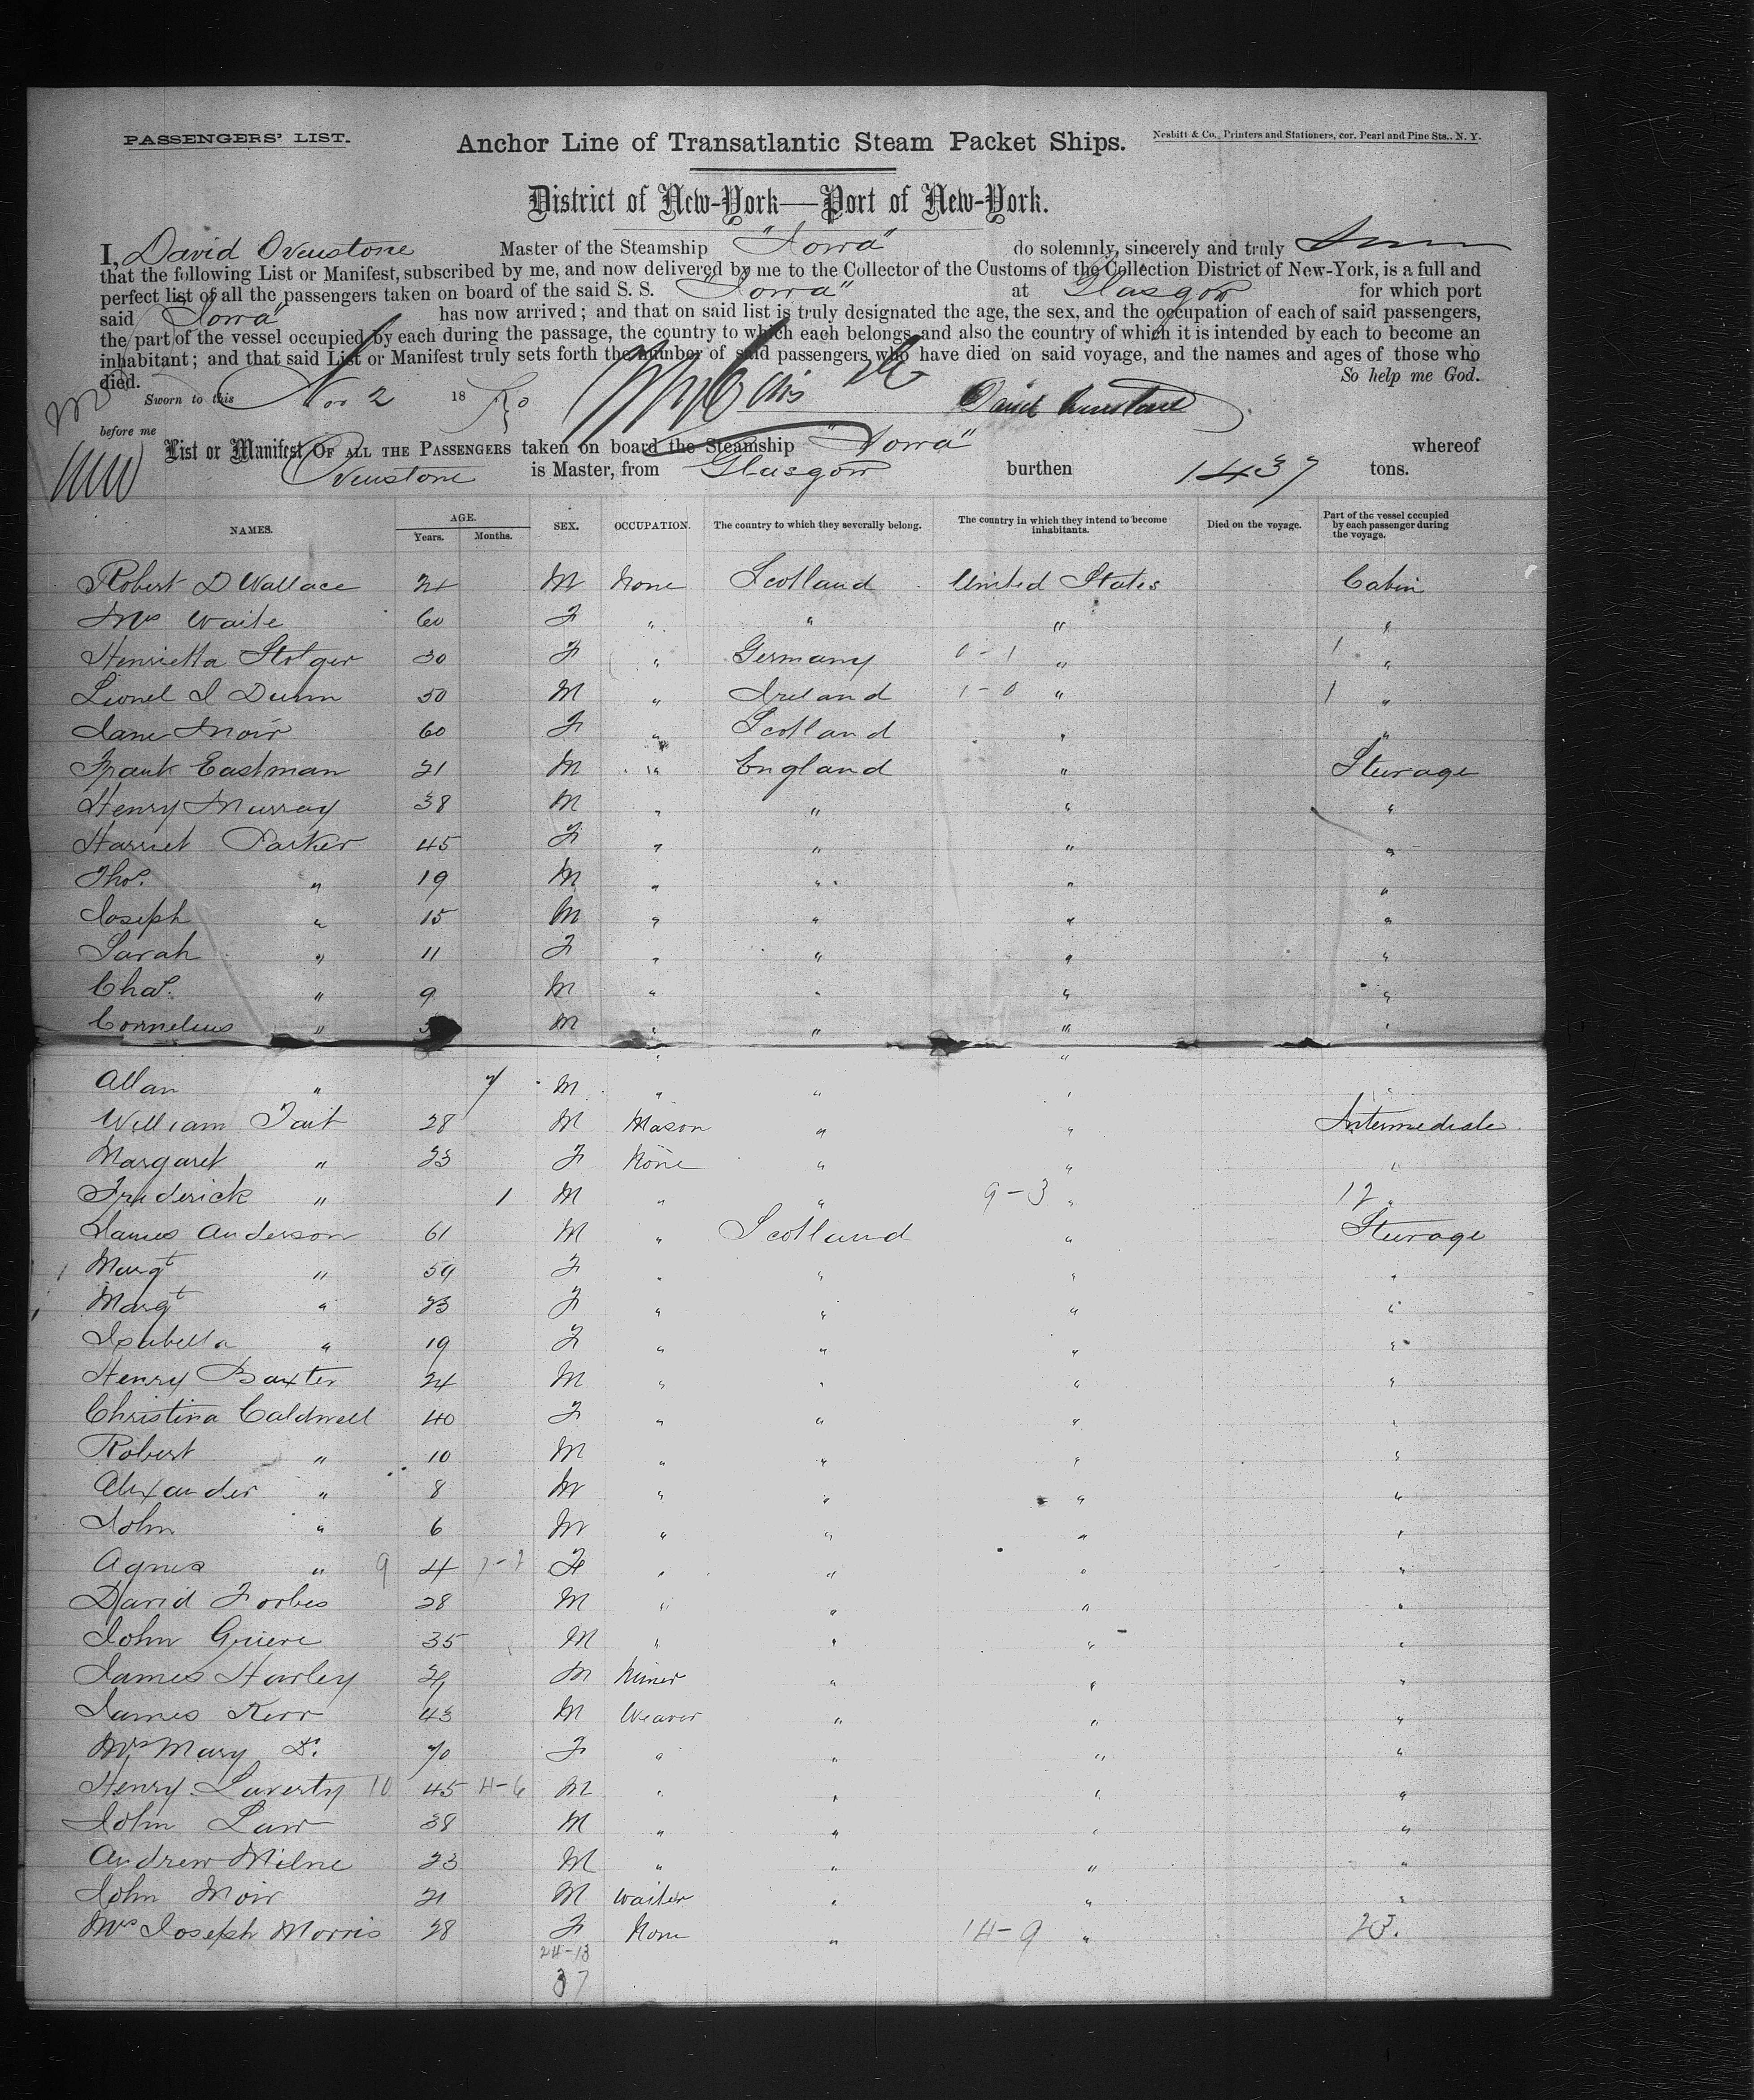 PASSENGERS' LIST.
Anchor Line of Transatlantic Steam Packet Ships.
Nesbitt & Co., Printers and Stationers, cor. Pearl and Pine Sts., N. Y.
District of New-York—Port of New-York.
I, David Ovenstone Master of the Steamship "Iowa" do solemnly, sincerely and truly Swear
that the following List or Manifest, subscribed by me, and now delivered by me to the Collector of the Customs of the Collection District of New-York, is a full and
perfect list of all the passengers taken on board of the said S. S. "Iowa" at Glasgow for which port
said "Iowa" has now arrived; and that on said list is truly designated the age, the sex, and the occupation of each of said passengers,
the part of the vessel occupied by each during the passage, the country to which each belongs, and also the country of which it is intended by each to become an
inhabitant; and that said List or Manifest truly sets forth the number of said passengers who have died on said voyage, and the names and ages of those who
died. So help me God.
Sworn to this Nov 2 18 David Ovenstone
before me
List or Manifest OF ALL THE PASSENGERS taken on board the Steamship "Iowa" whereof
Ovenstone is Master, from Glasgow burthen 1437 tons.
NAMES. AGE. Years. Months. SEX. OCCUPATION. The country to which they severally belong. The country in which they intend to become inhabitants. Died on the voyage. Part of the vessel occupied by each passenger during the voyage.
Robert D Wallace 24 M None Scotland United States Cabin
Mrs Waite 60 F " " " "
Henrietta Stolger 30 F " Germany 0-1 " 1 "
Lionel I Dunn 50 M " Ireland 1-0 " 1 "
Jane Moir 60 F " Scotland " "
Frank Eastman 21 M " England " Steerage
Henry Murray 38 M " " " "
Harriet Parker 45 F " " " "
Thos. " 19 M " " " "
Joseph " 15 M " " " "
Sarah " 11 F " " " "
Chas. " 9 M " " " "
Cornelius " M " " " "
Allan " 7 M " " " "
William Tait 28 M Mason " " Intermediate
Margaret " 23 F None " " "
Frederick " 1 M " " 9-3 " 12 "
James Anderson 61 M " Scotland " Steerage
Margt " 59 F " " " "
Margt " 23 F " " " "
Isabella " 19 F " " " "
Henry Baxter 24 M " " " "
Christina Caldwell 40 F " " " "
Robert " 10 M " " " "
Alexander " 8 M " " " "
John " 6 M " " " "
Agnes " 9 4 F " " " "
David Forbes 28 M " " " "
John Grieve 35 M " " " "
James Harley M Miner " " "
James Kerr 43 M Weaver " " "
Mrs Mary Do. 70 F " " " "
Henry Laverty 10 45 4-6 M " " " "
John Law 38 M " " " "
Andrew Milne 23 M " " " "
John Moir 21 M Waiter " " "
Mrs Joseph Morris 28 F None " 14-9 " 23.
24-13
37